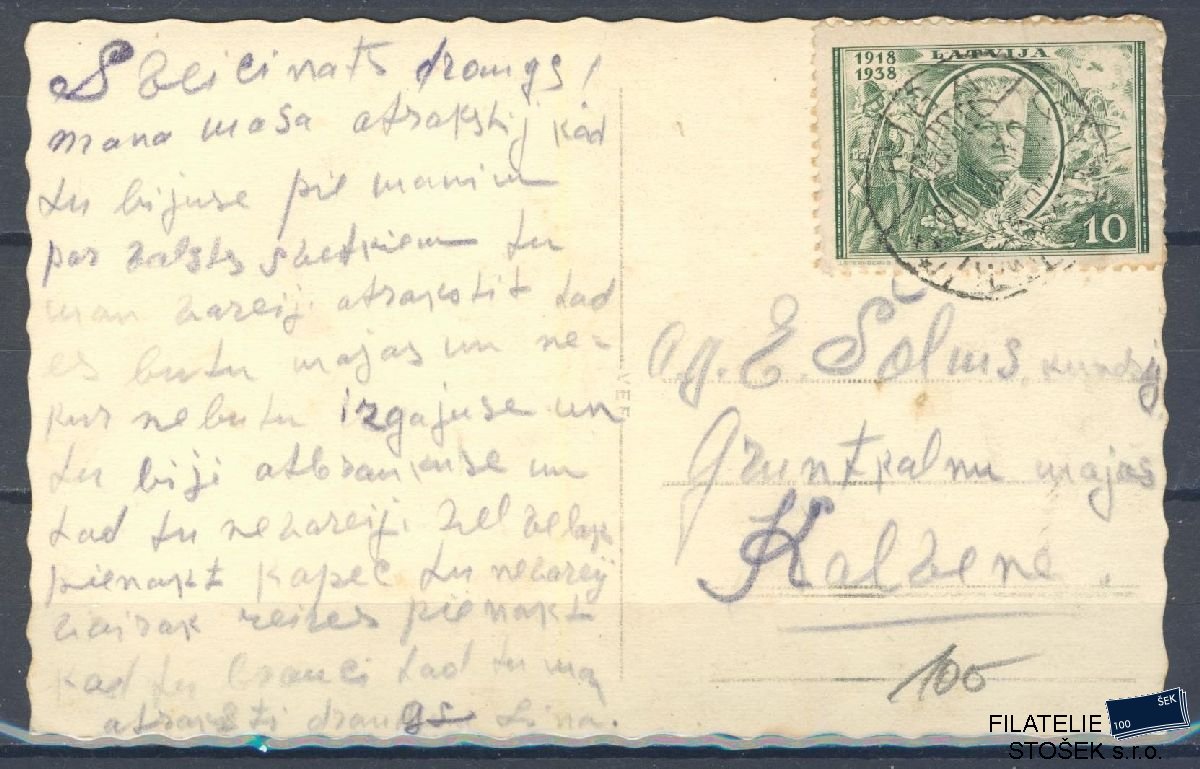 Sveicinats draugs!
mana masa atrakstij kad
tu bijuse pie manim
par valsts svetkiem tu
man vareij atrakstit tad
es butu majas un ne-
kur nebutu izgajuse un
tu biji atbraukuse un
tad tu nevareiji vel velak
pienakt kapec tu nevareij
vairak reizes pienakt
kad tu brauci tad tu ma
atraksti draugs Lina.
1918 LATVIJA
1938
10
VEF
E. Šolms kundzij
Gruntkalnu majas
Kalzene.
100
FILATELIE
STOŠEK s.r.o.
100 ŠEK